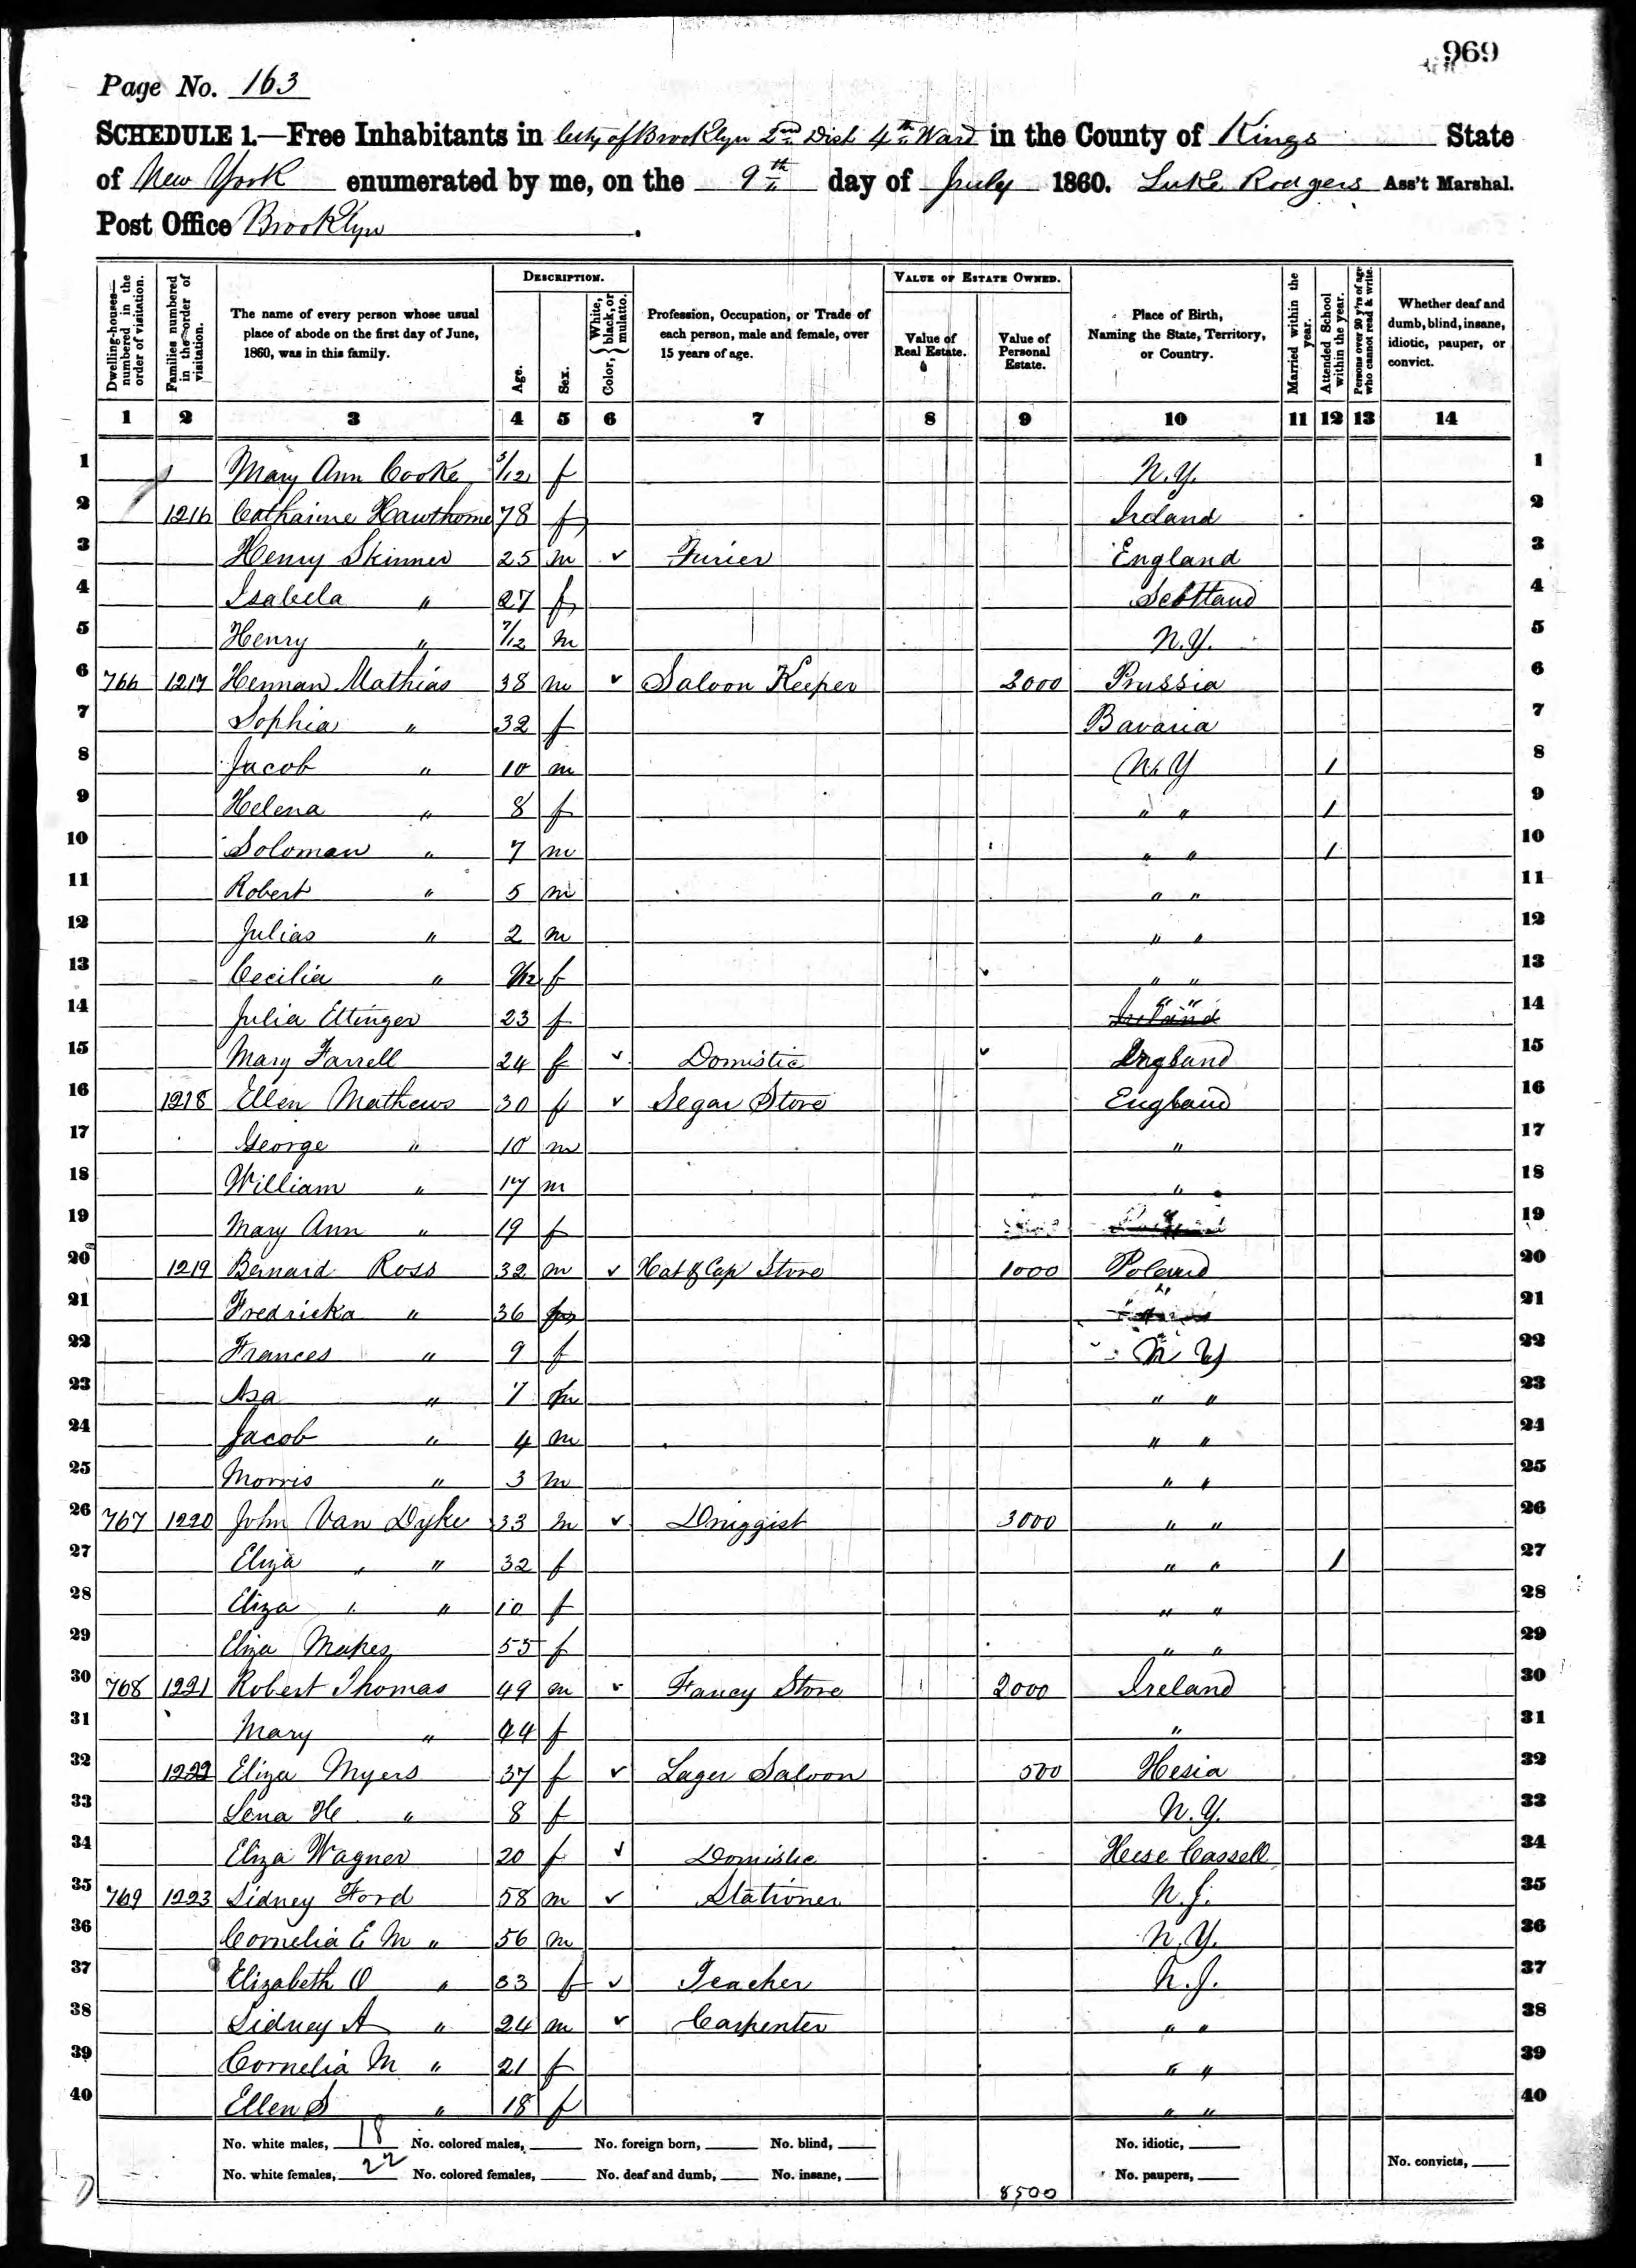 969
Page No. 163
SCHEDULE 1.—Free Inhabitants in City of Brooklyn 2nd Dist 4th Ward in the County of Kings State
of New York enumerated by me, on the 9th day of July 1860. Luke Rodgers Ass't Marshal.
Post Office Brooklyn.
Dwelling-houses—numbered in the order of visitation.
Families numbered in the order of visitation.
The name of every person whose usual place of abode on the first day of June, 1860, was in this family.
DESCRIPTION.
Age.
Sex.
Color, { White, black, or mulatto.
Profession, Occupation, or Trade of each person, male and female, over 15 years of age.
VALUE OF ESTATE OWNED.
Value of Real Estate.
Value of Personal Estate.
Place of Birth, Naming the State, Territory, or Country.
Married within the year.
Attended School within the year.
Persons over 20 y'rs of age who cannot read & write.
Whether deaf and dumb, blind, insane, idiotic, pauper, or convict.
1 2 3 4 5 6 7 8 9 10 11 12 13 14
1 Mary Ann Cooke 3/12 f N.Y. 1
2 1216 Catharine Hawthorne 78 f Ireland 2
3 Henry Skinner 25 m ✓ Furier England 3
4 Isabela " 27 f Scottland 4
5 Henry " 7/12 m N.Y. 5
6 766 1217 Herman Mathias 38 m ✓ Saloon Keeper 2000 Prussia 6
7 Sophia " 32 f Bavaria 7
8 Jacob " 10 m N.Y 1 8
9 Helena " 8 f " " 1 9
10 Soloman " 7 m " " 1 10
11 Robert " 5 m " " 11
12 Julias " 2 m " " 12
13 Cecilia " 9/12 f " " 13
14 Julia Ettinger 23 f " " Ireland 14
15 Mary Farrell 24 f ✓ Domistic England 15
16 1218 Ellen Mathews 30 f ✓ Segar Store England 16
17 George " 10 m " 17
18 William " 17 m " 18
19 Mary Ann " 19 f " 19
20 1219 Bernard Ross 32 m ✓ Hat & Cap Store 1000 Poland 20
21 Fredricka " 36 f " 21
22 Frances " 9 f N Y 22
23 Asa " 7 m " " 23
24 Jacob " 4 m " " 24
25 Morris " 3 m " " 25
26 767 1220 John Van Dyke 33 m ✓ Druggist 3000 " " 26
27 Eliza " " 32 f " " 1 27
28 Eliza " " 10 f " " 28
29 Eliza Makes 55 f " " 29
30 768 1221 Robert Thomas 49 m ✓ Fancy Store 2000 Ireland 30
31 Mary " 44 f " 31
32 1222 Eliza Myers 37 f ✓ Lager Saloon 500 Hesia 32
33 Lena H " 8 f N.Y. 33
34 Eliza Wagner 20 f ✓ Domistic Hese Cassell 34
35 769 1223 Sidney Ford 58 m ✓ Stationer N.J. 35
36 Cornelia E M " 56 m N.Y. 36
37 Elizabeth O " 33 f ✓ Teacher N.J. 37
38 Sidney A " 24 m ✓ Carpenter " " 38
39 Cornelia M " 21 f " " 39
40 Ellen S " 18 f " " 40
No. white males, 18 No. colored males, No. foreign born, No. blind, No. idiotic,
No. white females, 22 No. colored females, No. deaf and dumb, No. insane, No. paupers, No. convicts,
8500